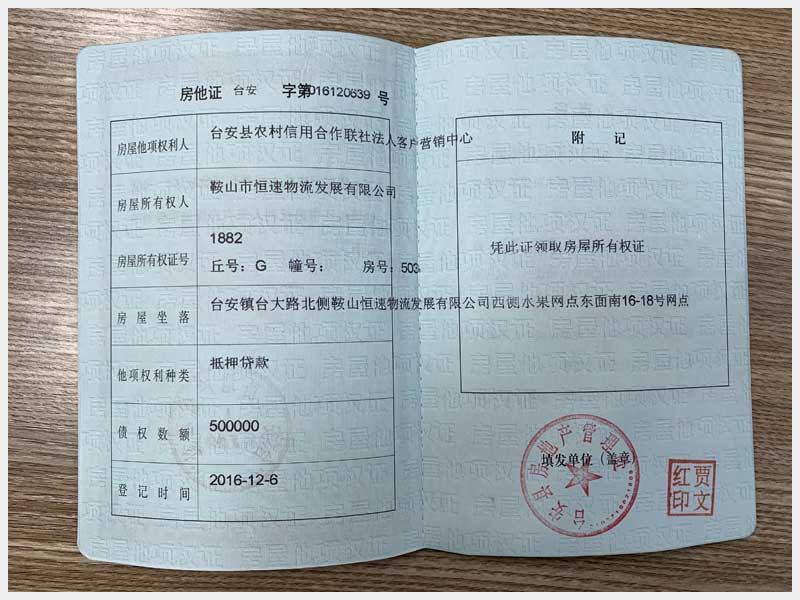 房他证 台安 字第016120639 号
房屋他项权利人 台安县农村信用合作联社法人客户营销中心
房屋所有权人 鞍山市恒速物流发展有限公司
房屋所有权证号 1882
丘号：G 幢号： 房号：503
房屋坐落 台安镇台大路北侧鞍山恒速物流发展有限公司西侧水果网点东面南16-18号网点
他项权利种类 抵押贷款
债权数额 500000
登记时间 2016-12-6
附 记
凭此证领取房屋所有权证
台安县房地产管理处
填发单位（盖章）
贾文红印